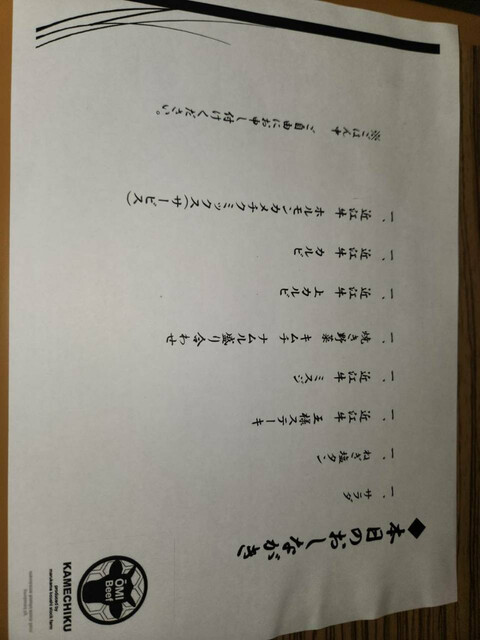 ◆本日のおしながき
一、サラダ
一、ねぎ塩タン
一、近江牛 王様ステーキ
一、近江牛 ミスジ
一、焼き野菜 キムチ ナムル盛り合わせ
一、近江牛 上カルビ
一、近江牛 カルビ
一、近江牛 ホルモンカメチクミックス(サービス)
※ごはん中 ご自由にお申し付けください。
ŌMI
Beef
KAMECHIKU
produced by